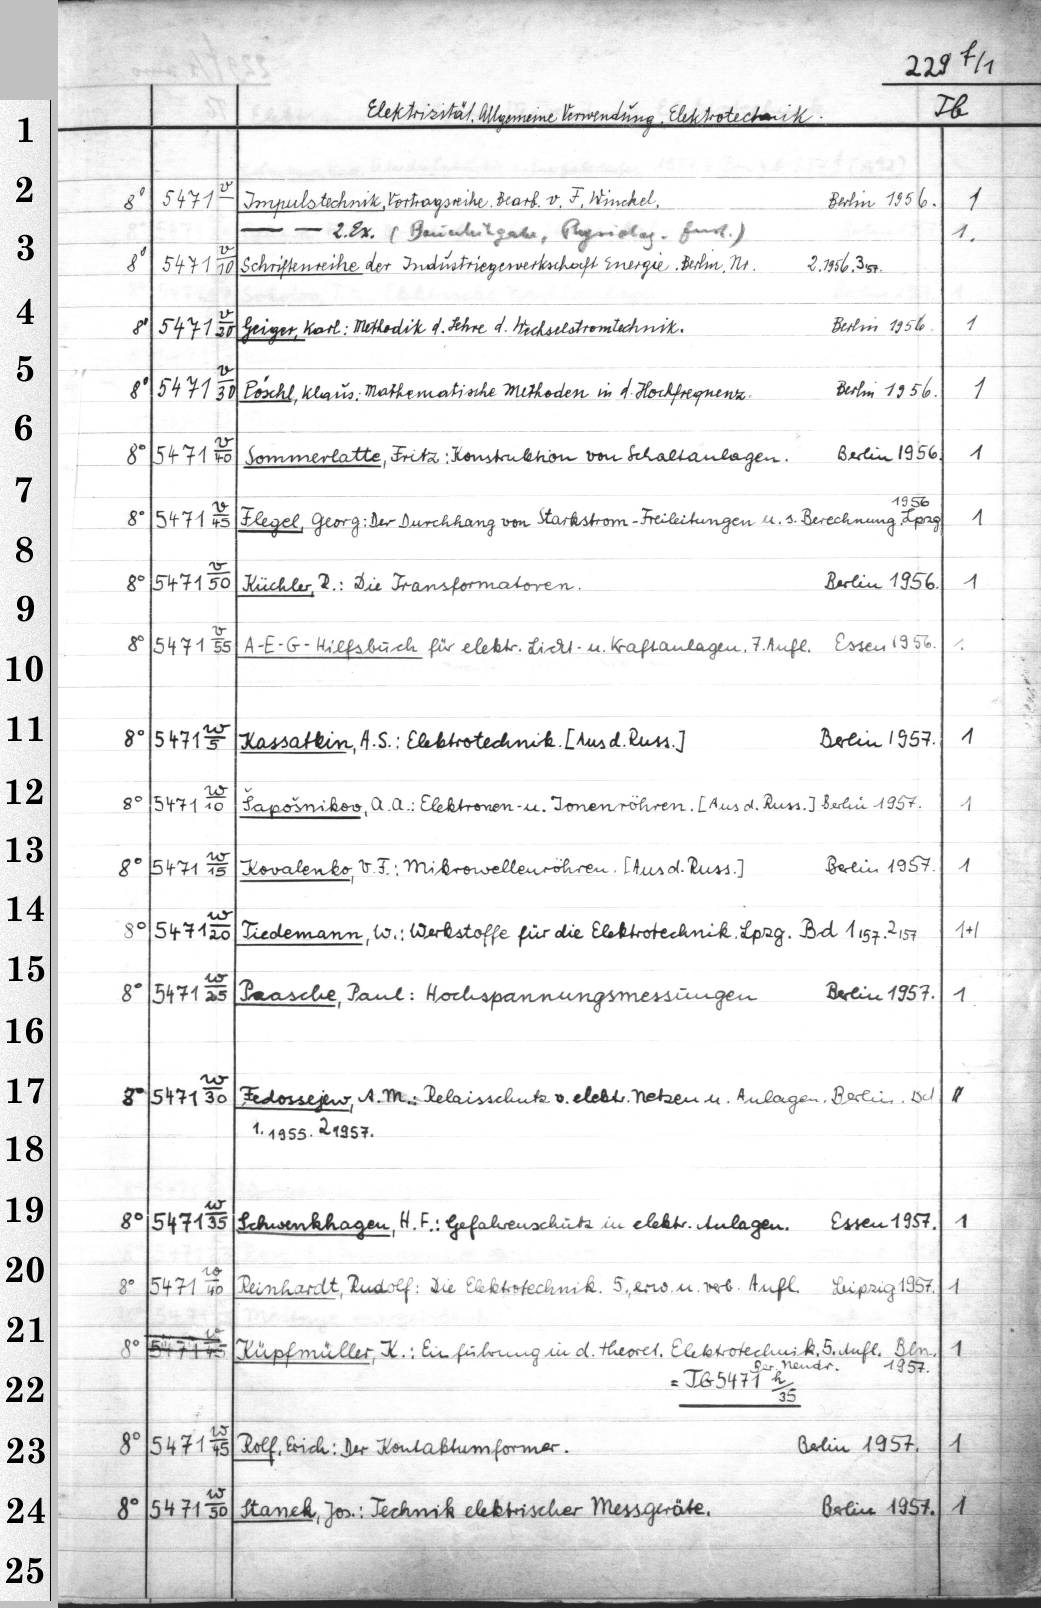 229 f/1
Elektrizität. Allgemeine Verwendung. Elektrotechnik. Ib
1
2
8° 5471 v/– Impulstechnik, Vortragsreihe. Bearb. v. F. Winckel. Berlin 1956. 1
— — 2. Ex. ( 1.
3
8° 5471 v/10 Schriftenreihe der Industriegewerkschaft Energie. Berlin. Nr. 2.1956. 3,57.
4
8° 5471 v/20 Geiger, Karl: Methodik d. Lehre d. Wechselstromtechnik. Berlin 1956. 1
5
8° 5471 v/30 Pöschl, Klaus: Mathematische Methoden in d. Hochfrequenz. Berlin 1956. 1
6
8° 5471 v/40 Sommerlatte, Fritz: Konstruktion von Schaltanlagen. Berlin 1956. 1
7
1956
8° 5471 v/45 Flegel, Georg: Der Durchhang von Starkstrom-Freileitungen u. s. Berechnung. Lpzg 1
8
8° 5471 v/50 Küchler, R.: Die Transformatoren. Berlin 1956. 1
9
8° 5471 v/55 A-E-G-Hilfsbuch für elektr. Licht- u. Kraftanlagen. 7. Aufl. Essen 1956. 1.
10
11
8° 5471 w/5 Kassatkin, A.S.: Elektrotechnik. [Aus d. Russ.] Berlin 1957. 1
12
8° 5471 w/10 Šapošnikov, A.A.: Elektronen- u. Ionenröhren. [Aus d. Russ.] Berlin 1957. 1
13
8° 5471 w/15 Kovalenko, V.F.: Mikrowellenröhren. [Aus d. Russ.] Berlin 1957. 1
14
8° 5471 w/20 Tiedemann, W.: Werkstoffe für die Elektrotechnik. Lpzg. Bd 1,57. 2,57 1+1
15
8° 5471 w/25 Paasche, Paul: Hochspannungsmessungen Berlin 1957. 1
16
17
8° 5471 w/30 Fedossejew, A.M.: Relaisschutz v. elektr. Netzen u. Anlagen. Berlin. Bd
1. 1955. 2 1957.
18
19
8° 5471 w/35 Schwenkhagen, H.F.: Gefahrenschutz in elektr. Anlagen. Essen 1957. 1
20
8° 5471 w/40 Reinhardt, Rudolf: Die Elektrotechnik. 5., erw. u. verb. Aufl. Leipzig 1957. 1
21
8° 5471 w/45 Küpfmüller, K.: Einführung in d. theoret. Elektrotechnik. 5. Aufl. Bln. 1
Ber. Neudr. 1957.
22
= IG 5471 h/35
23
8° 5471 w/45 Rolf, Erich: Der Kontaktumformer. Berlin 1957. 1
24
8° 5471 w/50 Stanek, Jos.: Technik elektrischer Messgeräte. Berlin 1957. 1
25